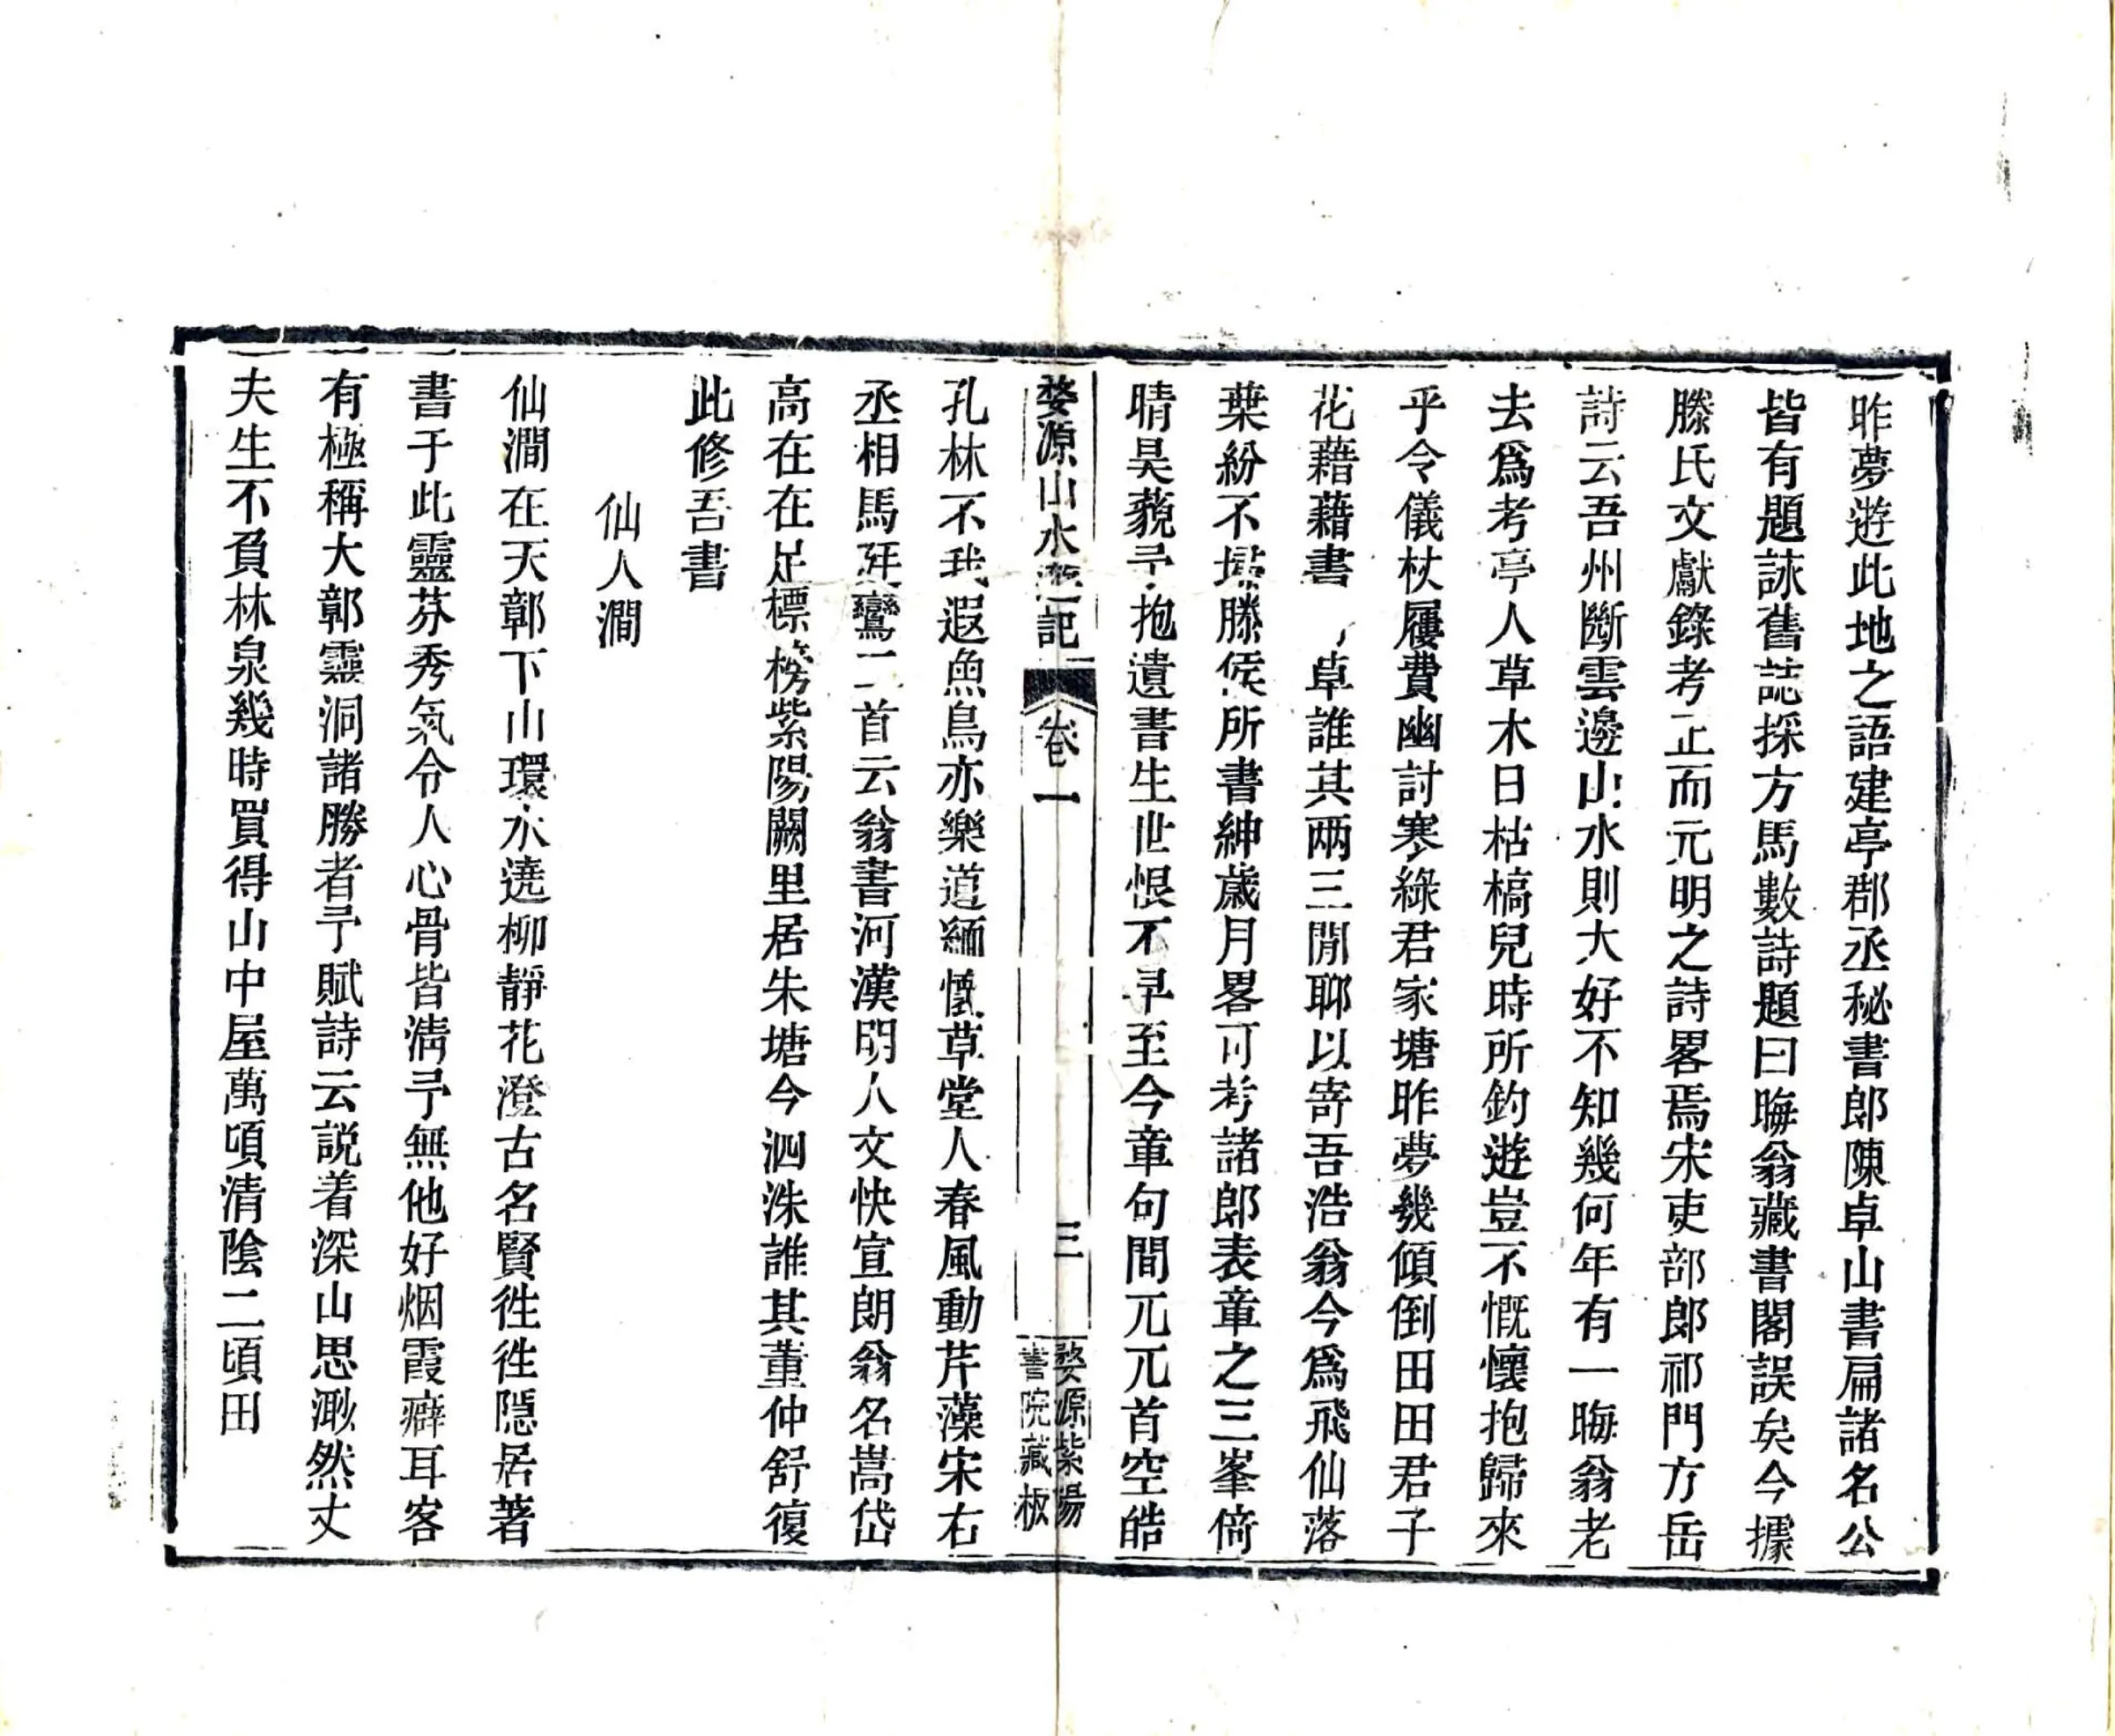 昨夢遊此地之語建亭郡丞秘書郎陳卓山書扁諸名公
皆有題詠舊誌採方馬數詩題曰晦翁藏書閣誤矣今據
滕氏文獻錄考正而元明之詩畧焉宋吏部郎祁門方岳
詩云吾州斷雲邊山水則大好不知幾何年有一晦翁老
去爲考亭人草木日枯槁兒時所釣遊豈不慨懷抱歸來
乎令儀杖屨費幽討寒綠君家塘昨夢幾傾倒田田君子
花藉藉書草誰其兩三閒聊以寄吾浩翁今爲飛仙落
葉紛不埽滕侯所書紳歲月畧可考諸郎表章之三峯倚
晴昊藐予抱遺書生世恨不早至今章句間兀兀首空皓
婺源山水遊記
卷一
三
婺源紫陽
書院藏板
孔林不我遐魚鳥亦樂道緬懷草堂人春風動芹藻宋右
丞相馬廷鸞二首云翁書河漢明人文快宣朗翁名嵩岱
高在在足標榜紫陽闕里居朱塘今泗洙誰其董仲舒復
此修吾書
仙人澗
仙澗在天鄣下山環水遶柳靜花澄古名賢徃徃隱居著
書于此靈芬秀氣令人心骨皆清予無他好烟霞癖耳客
有極稱大鄣靈洞諸勝者予賦詩云説着深山思渺然丈
夫生不負林泉幾時買得山中屋萬頃清陰二頃田